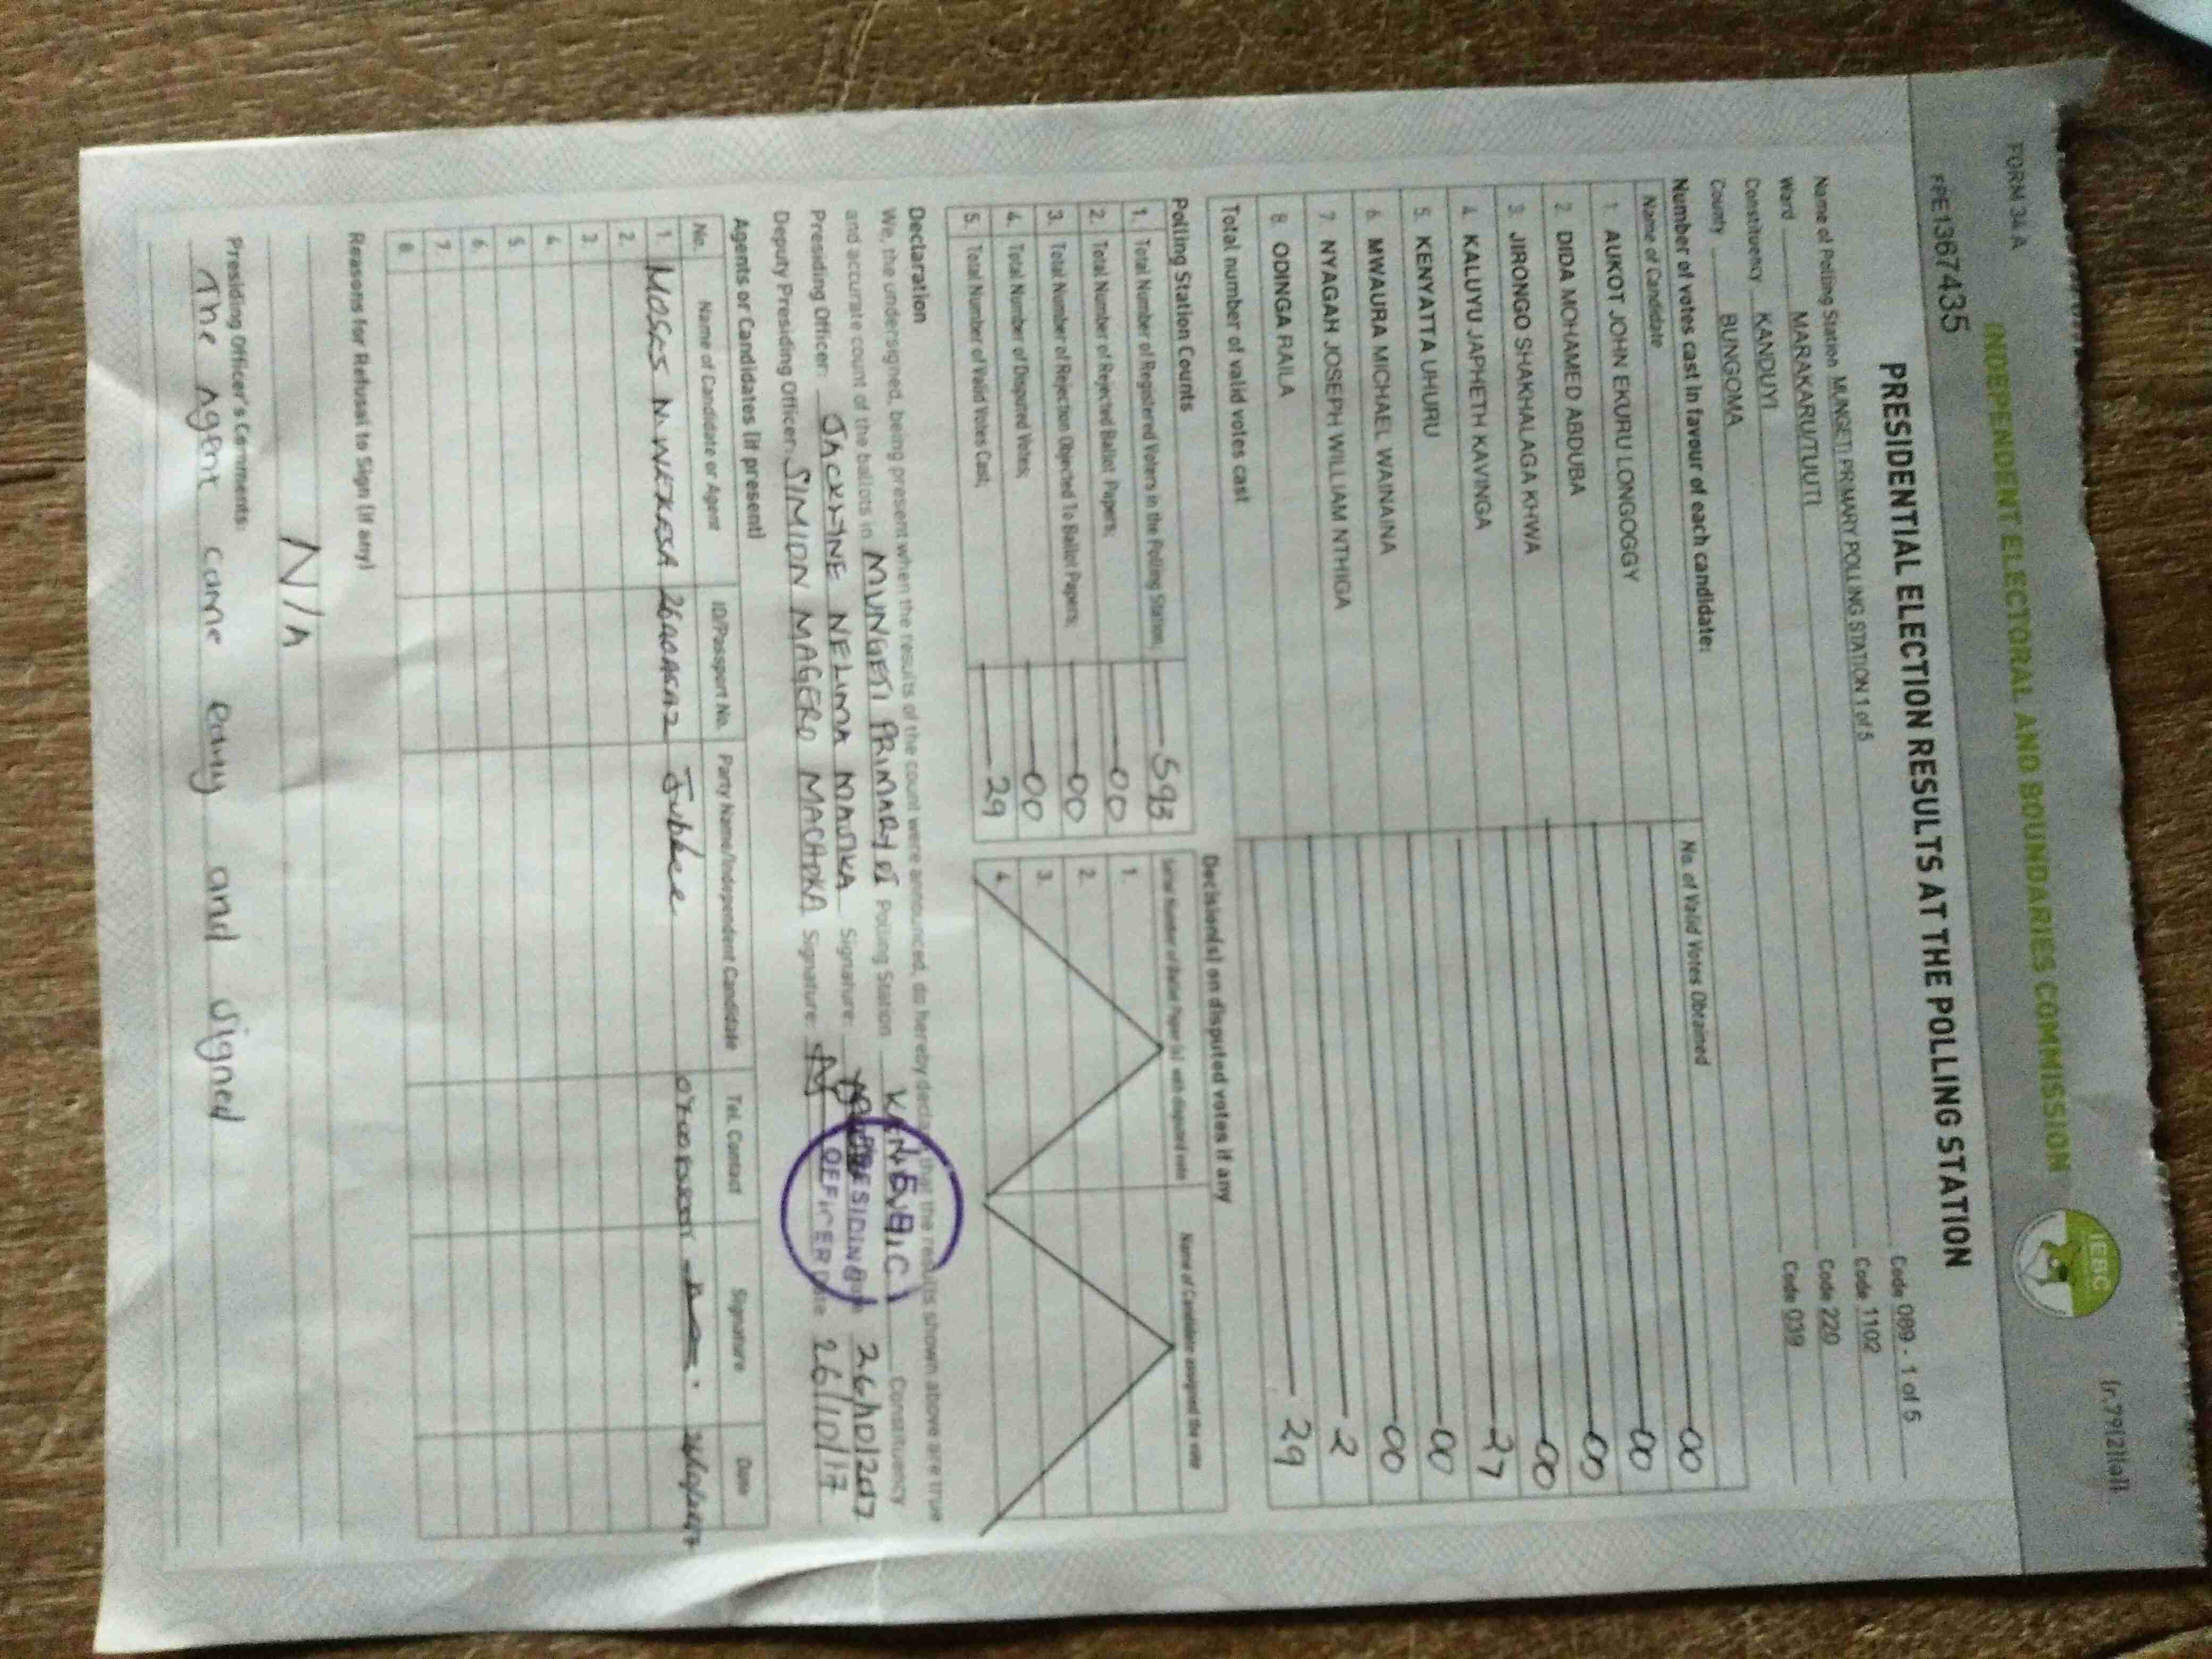 FORM 34A
INDEPENDENT ELECTORAL AND BOUNDARIES COMMISSION
IEBC
(r.79(2)(a))
FPE1367435
PRESIDENTIAL ELECTION RESULTS AT THE POLLING STATION
Name of Polling Station MUNGETI PRIMARY POLLING STATION 1 of 5 Code 089 - 1 of 5
Ward MARAKARU/TUUTI Code 1102
Constituency KANDUYI Code 220
County BUNGOMA Code 039
Number of votes cast in favour of each candidate:
Name of Candidate No. of Valid Votes Obtained
1. AUKOT JOHN EKURU LONGOGGY 00
2. DIDA MOHAMED ABDUBA 00
3. JIRONGO SHAKHALAGA KHWA 00
4. KALUYU JAPHETH KAVINGA 00
5. KENYATTA UHURU 27
6. MWAURA MICHAEL WAINAINA 00
7. NYAGAH JOSEPH WILLIAM NTHIGA 00
8. ODINGA RAILA 2
Total number of valid votes cast 29
Polling Station Counts
1. Total Number of Registered Voters in the Polling Station; 593
2. Total Number of Rejected Ballot Papers; 00
3. Total Number of Rejection Objected To Ballot Papers; 00
4. Total Number of Disputed Votes; 00
5. Total Number of Valid Votes Cast; 29
Decision(s) on disputed votes if any
Serial Number of Ballot Paper (s) with disputed vote Name of Candidate assigned the vote
1.
2.
3.
4.
Declaration
We, the undersigned, being present when the results of the count were announced, do hereby declare that the results shown above are true
and accurate count of the ballots in MUNGETI PRIMARY Polling Station Constituency
Presiding Officer: JACKLYNE NELIMA Signature: 26/10/2017
Deputy Presiding Officer: SIMION MAGERO MACHOKA Signature: Date 26/10/17
PRESIDING
OFFICER
Agents or Candidates (if present)
No. Name of Candidate or Agent ID/Passport No. Party Name/Independent Candidate Tel. Contact Signature Date
1. MOSES N. WEKESA Jubilee
2.
3.
4.
5.
6.
7.
8.
Reasons for Refusal to Sign (if any)
N/A
Presiding Officer's Comments:
The Agent came early and signed